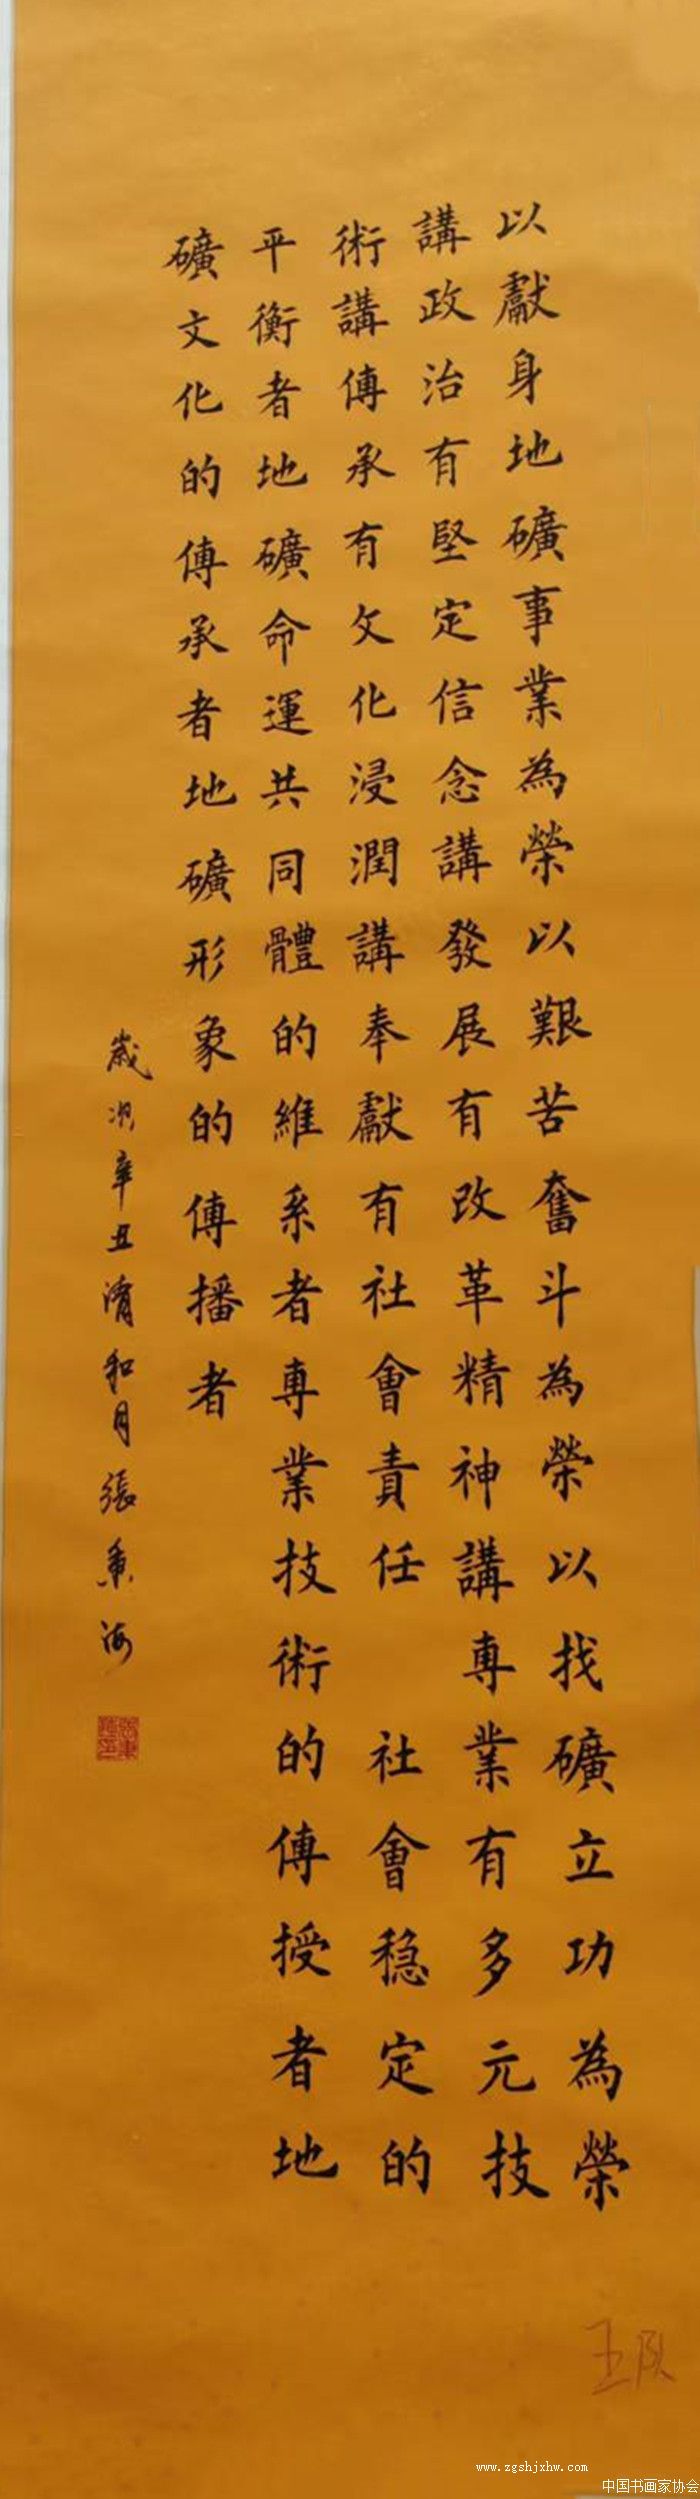 以獻身地礦事業為榮以艱苦奮斗為榮以找礦立功為榮
講政治有堅定信念講發展有改革精神講專業有多元技
術講傳承有文化浸潤講奉獻有社會責任 社會穩定的
平衡者地礦命運共同體的維系者專業技術的傳授者地
礦文化的傳承者地礦形象的傳播者
歲次辛丑清和月張秉海
王队
www.zgshjxhw.com
中国书画家协会